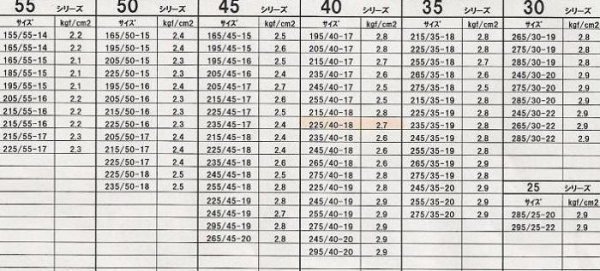 55 シリーズ 50 シリーズ 45 シリーズ 40 シリーズ 35 シリーズ 30 シリーズ
サイズ kgf/cm2 サイズ kgf/cm2 サイズ kgf/cm2 サイズ kgf/cm2 サイズ kgf/cm2 サイズ kgf/cm2
155/55-14 2.2 165/50-15 2.4 165/45-15 2.5 195/40-17 2.8 215/35-18 2.8 265/30-19 2.8
165/55-14 2.2 165/50-16 2.4 195/45-15 2.4 205/40-17 2.8 225/35-18 2.8 275/30-19 2.8
165/55-15 2.1 205/50-15 2.3 195/45-16 2.5 215/40-17 2.7 255/35-18 2.6 285/30-19 2.8
185/55-15 2.1 225/50-15 2.2 205/45-16 2.4 235/40-17 2.6 265/35-18 2.6 245/30-20 2.8
195/55-15 2.1 195/50-16 2.4 205/45-17 2.7 245/40-17 2.5 275/35-18 2.5 285/30-20 2.8
205/55-16 2.2 205/50-16 2.3 215/45-17 2.6 255/40-17 2.5 215/35-19 2.8 255/30-22 2.9
215/55-16 2.2 215/50-16 2.3 225/45-17 2.5 215/40-18 2.8 225/35-19 2.8 245/30-22 2.9
215/55-16 2.2 225/50-16 2.3 235/45-17 2.4 225/40-18 2.7 235/35-19 2.8 265/30-22 2.9
215/55-17 2.3 205/50-17 2.4 215/45-18 2.7 235/40-18 2.6 245/35-19 2.8 285/30-22 2.9
225/55-17 2.3 215/50-17 2.4 225/45-18 2.6 245/40-18 2.6 255/35-19 2.8
225/50-17 2.4 235/45-18 2.6 265/40-18 2.6 265/35-19 2.9
225/50-18 2.4 245/45-18 2.6 225/40-19 2.9 275/35-19 2.8
235/50-18 2.5 255/45-18 2.8 245/40-19 2.8 245/35-20 2.9 25 シリーズ
225/45-19 2.8 255/40-19 2.9 255/35-20 2.8 サイズ kgf/cm2
245/45-19 2.7 275/40-19 2.9 275/35-20 2.9 285/25-20 2.9
295/45-19 2.8 245/40-20 2.9 295/25-22 2.9
265/45-20 2.8 295/40-20 2.9